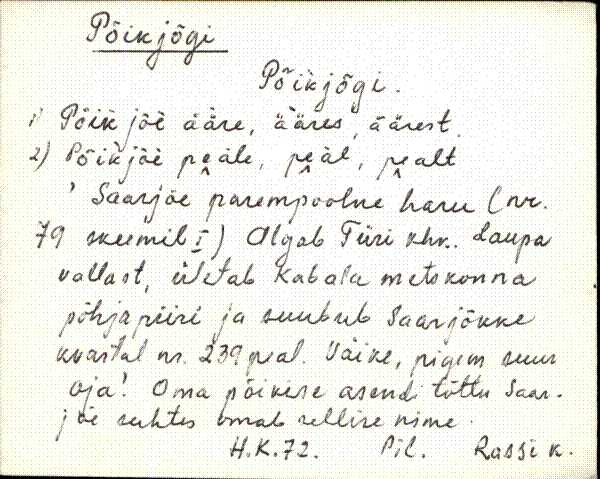 Põikjõgi
Põikjõgi.
1) Põik jõè ääre, ääres, äärest.
2) Põikjõè peäle, peäl, pealt
' Saarjõe parempoolne haru (nr.
79 skeemil I) Algab Türi khk. Laupa
vallast, ületab Kabala metskonna
põhjapiiri ja suubub Saarjõkke
kvartal nr. 239 peal. Väike, pigem suur
oja'. Oma põikise asendi tõttu Saar-
jõe suhtes omab sellise nime.
H.K.72. Pil. Rassi k.